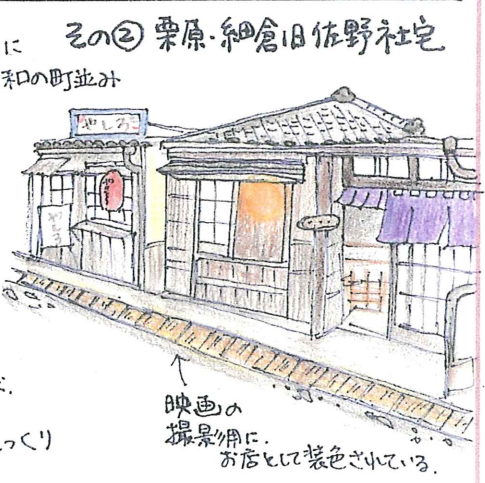 その② 栗原・細倉旧佐野社宅
に
和の町並み
やしろ
映画の
撮影用に、
お店として装色されている。
っくり